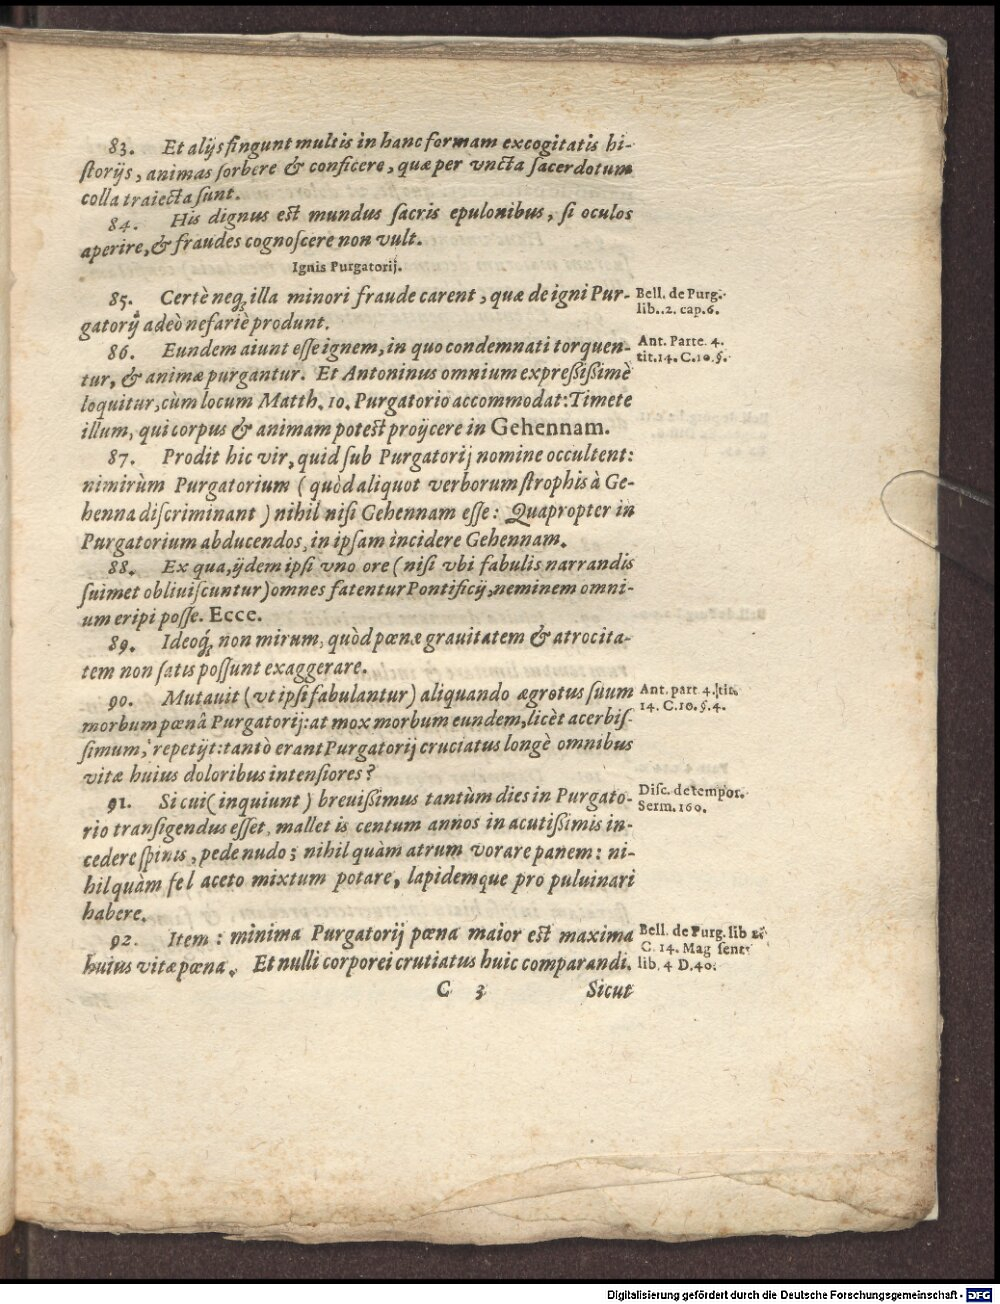 83. Et alijs fingunt multis in hanc formam excogitatis hi-
ſtorijs, animas ſorbere & conficere, quæ per vncta ſacerdotum
colla traiecta ſunt.
84. His dignus eſt mundus ſacris epulonibus, ſi oculos
aperire, & fraudes cognoſcere non vult.
Ignis Purgatorij.
85. Certè neq; illa minori fraude carent, quæ de igni Pur-
gatorij adeò nefariè produnt.
Bell. de Purg.
lib..2. cap.6.
86. Eundem aiunt eſſe ignem, in quo condemnati torquen-
tur, & animæ purgantur. Et Antoninus omnium expreßißimè
loquitur, cùm locum Matth. 10. Purgatorio accommodat: Timete
illum, qui corpus & animam poteſt proijcere in Gehennam.
Ant. Parte. 4.
tit.14. C.10.§.
87. Prodit hic vir, quid ſub Purgatorij nomine occultent:
nimirùm Purgatorium (quòd aliquot verborum ſtrophis à Ge-
henna diſcriminant) nihil niſi Gehennam eſſe: Quapropter in
Purgatorium abducendos, in ipſam incidere Gehennam.
88. Ex qua, ijdem ipſi vno ore (niſi vbi fabulis narrandis
ſuimet obliuiſcuntur) omnes fatentur Pontificij, neminem omni-
um eripi poſſe. Ecce.
89. Ideoq; non mirum, quòd pœnæ grauitatem & atrocita-
tem non ſatis poſſunt exaggerare.
90. Mutauit (vt ipſi fabulantur) aliquando ægrotus ſuum
morbum pœnâ Purgatorij: at mox morbum eundem, licèt acerbiſ-
ſimum, repetijt: tantò erant Purgatorij cruciatus longè omnibus
vitæ huius doloribus intenſiores?
Ant. part 4. tit.
14. C.10. §.4.
91. Si cui (inquiunt) breuißimus tantùm dies in Purgato-
rio tranſigendus eſſet, mallet is centum annos in acutißimis in-
cedere ſpinis, pede nudo; nihil quàm atrum vorare panem: ni-
hil quàm fel aceto mixtum potare, lapidemque pro puluinari
habere.
Diſc. de tempor.
Serm. 160.
92. Item: minima Purgatorij pœna maior eſt maxima
huius vitæ pœna. Et nulli corporei crutiatus huic comparandi.
Bell. de Purg. lib
C. 14. Mag ſent
lib. 4 D.40.
C 3 Sicut
Digitalisierung gefördert durch die Deutsche Forschungsgemeinschaft - DFG